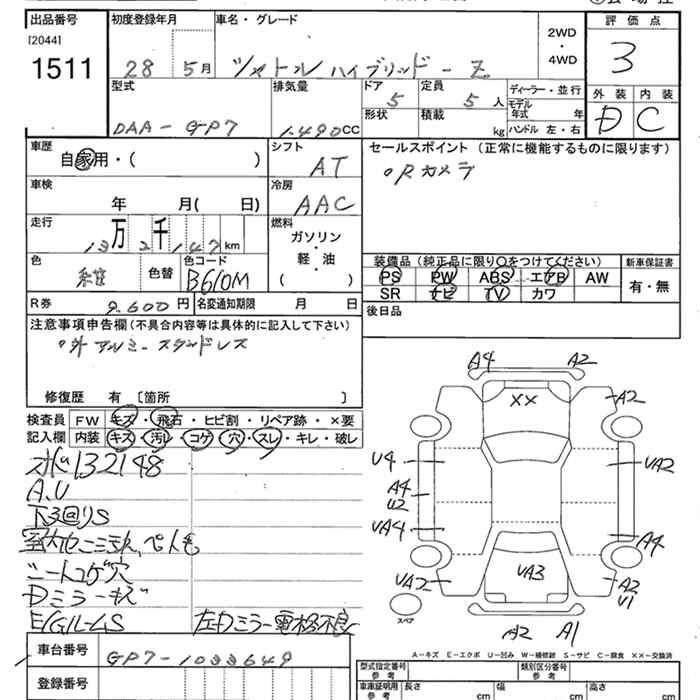 出品番号
[2044]
1511
初度登録年月
28 5月
車名・グレード
シャトルハイブリッド-Z
2WD
・
4WD
評価点
3
型式
DAA-GP7
排気量
1.490cc
ドア
5
定員
5人
形状
積載
kg
ディーラー・並行
モデル年式 年
ハンドル 左・右
外装 内装
D C
車歴
自家用・( )
シフト
AT
セールスポイント(正常に機能するものに限ります)
。Rカメラ
車検
年 月( 日)
冷房
AAC
走行
13万2千147km
燃料
ガソリン
・
軽・油
( )
色
紺
色替
色コード
B610M
装備品(純正品に限り○をつけてください)
PS PW ABS エアB AW
SR ナビ TV カワ
新車保証書
有・無
R券
9.600円
名変通知期限 月 日
後日品
注意事項申告欄(不具合内容等は具体的に記入して下さい)
修復歴 有 [箇所 ]
検査員 FW キズ・飛石・ヒビ割・リペア跡・×要
記入欄 内装 キズ・汚レ・コゲ・穴・スレ・キレ・破レ
132148
A.U
下3@リS
シートコゲ穴
Dミラーキズ
左Dミラー電格不良
車台番号
GP7-1033649
登録番号
A4 A2
XX
A2
U4
A4
U2
UA4
UA2
UA2
A4
UA3
A2
U1
スペア
A2 A1
A-キズ E-エクボ U-凹み W-補修跡 S-サビ C-腐食 XX-交換済
型式指定番号
参考
類別区分番号
参考
車庫証明用
参考
長さ
cm
幅
cm
高さ
cm